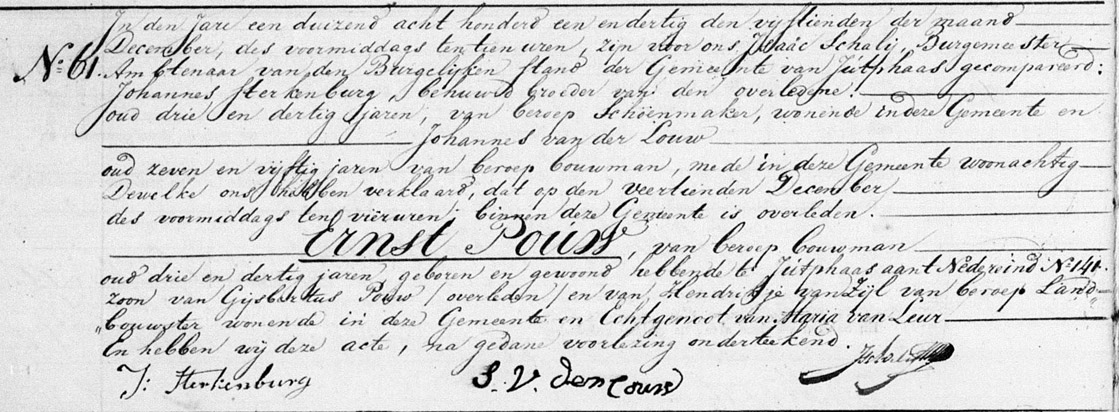 In den Jare een duizend acht honderd een en dertig den vijftienden der maand
December, des voormiddags ten tien uren, zijn voor ons, Isaäc Schalij, Burgemeester
No. 61. Ambtenaar van den Burgelijken stand der Gemeente van Jutphaas, gecompareerd:
Johannes Sterkenburg, behuwd broeder van den overledene.
oud drie en dertig jaren, van beroep Schoenmaker, wonende in deze Gemeente en
Johannes van der Louw
oud zeven en vijftig jaren van beroep bouwman, mede in deze Gemeente woonachtig
Dewelke ons hebben verklaard, dat op den veertienden December
des voormiddags ten vier uren binnen deze Gemeente is overleden.
Ernst Pouw, van beroep bouwman
oud drie en dertig jaren, geboren en gewoond hebbende te Jutphaas aan t Nedereind No. 141.
zoon van Gijsbertus Pouw / overleden / en van Hendrikje van Zijl van beroep Land-
"bouwster wonende in deze Gemeente en Echtgenoot van Maria van Leur
En hebben wij deze acte, na gedane voorlezing onderteekend.
J: Sterkenburg